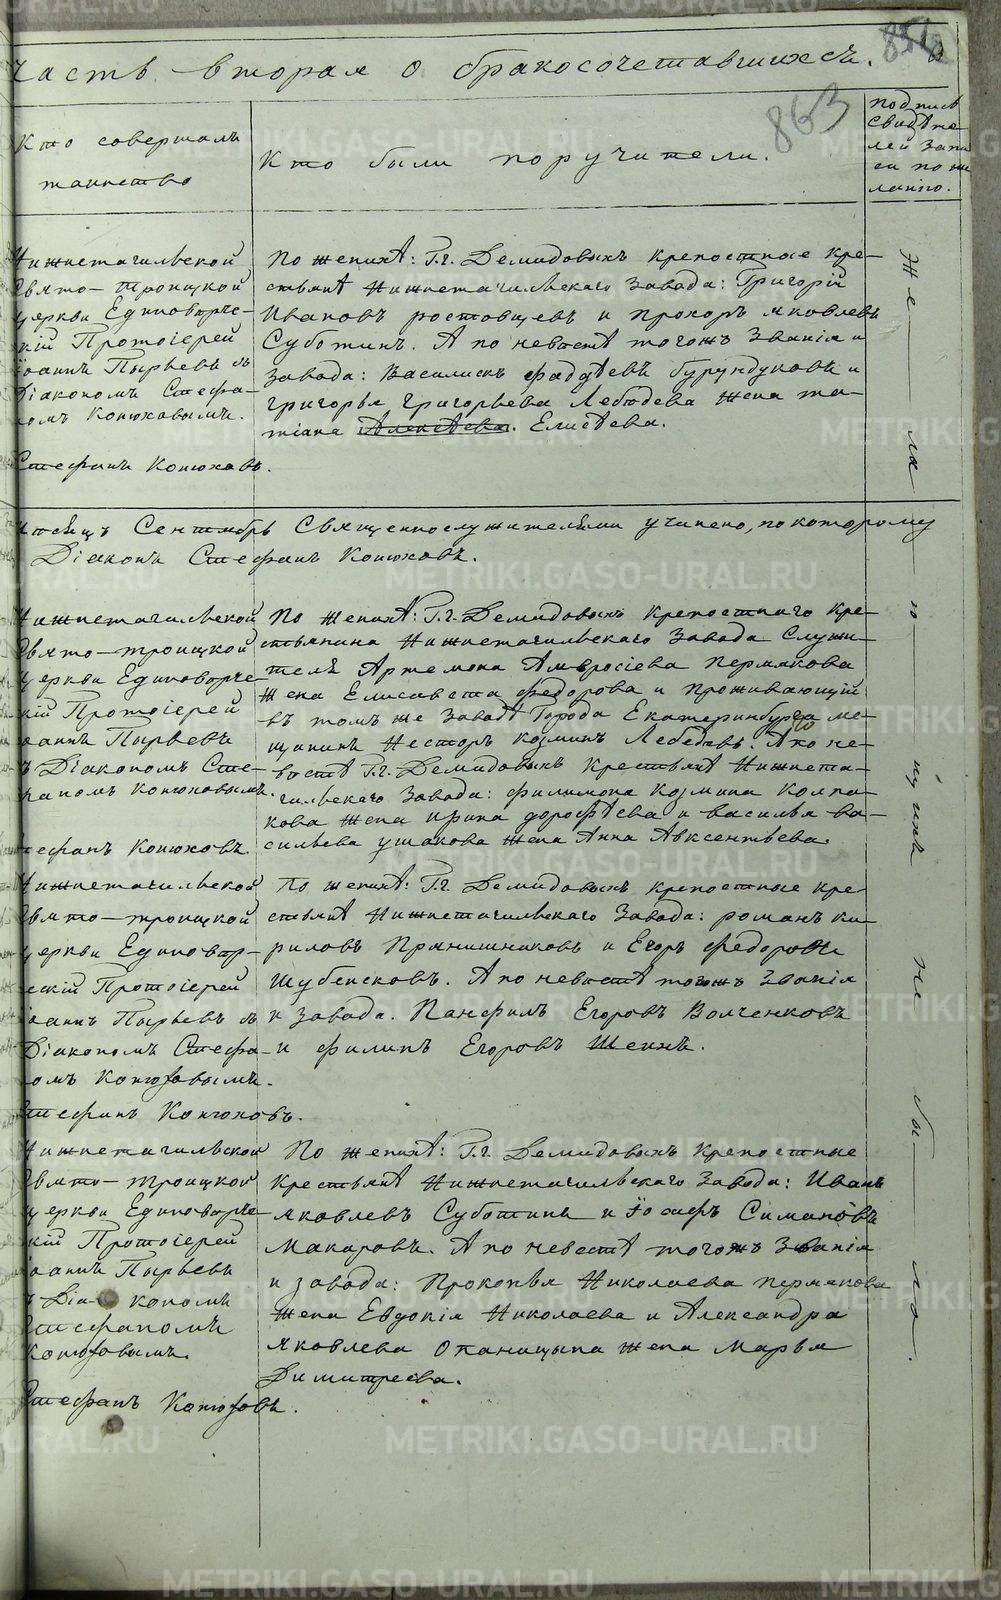 Часть вторая о бракосочетавшихся.
863
Кто совершалъ
таинство
Кто были поручители.
Подпись
свидѣте
лей запи
си по же
ланію.
Нижнетагильской
Свято-Троицкой
церкви Единовѣрче-
скій Протоіерей
Іоаннъ Пырьевъ съ
Діакономъ Стефа-
номъ Конюховымъ.
Стефанъ Конюховъ.
По женихѣ: Г.г. Демидовыхъ крепостные кре-
стьянѣ Нижнетагильскаго завода: Григорій
Ивановъ ростовщевъ и Прохоръ яковлевъ
Суботинъ. А по невѣстѣ тогожъ званія и
завода: Василискъ фадѣевъ бурундуковъ и
григорья григорьева Лебедева жена та-
тіана Алексѣева. Елисѣева.
Мѣсяцъ Сентябрь Священнослужителями учинено, по которому
Діаконъ Стефанъ Конюховъ.
Нижнетагильской
Свято-троицкой
церкви Единоверче-
скій Протоіерей
Іоаннъ Пырьевъ
съ Діакономъ Сте-
фаномъ Конюховымъ.
Стефанъ Конюховъ.
По женихѣ: Г.г. Демидовыхъ крепостнаго кре-
стьянина Нижнетагильскаго завода Служи-
теля Артемона Амвросіева пермякова
жена Елисавета федорова и проживающій
въ томъ же заводѣ Города Екатеринбурга ме-
щанинъ Несторъ козминъ Лебедевъ. А по не-
вестѣ Г.г. Демидовыхъ крестьянѣ Нижнета-
гильскаго завода: филимона козмина колпа-
кова жена ирина дорофѣева и василья ва-
сильева ушакова жена Анна Авксентьева.
Нижнетагильской
Свято-троицкой
церкви Единовѣр-
ческій Протоіерей
Іоаннъ Пырьевъ съ
Діакономъ Стефа-
номъ Конюховымъ.
Стефанъ Конюховъ.
По женихѣ: Г.г. Демидовыхъ крепостные кре-
стьянѣ Нижнетагильскаго завода: романъ ки-
риловъ Прянишниковъ и Егоръ федоровъ
Шубенсковъ. А по невестѣ тогожъ званія
и завода. Панфилъ Егоровъ Волченковъ
и филипъ Егоровъ Шеинъ.
Нижнетагильской
Свято-троицкой
церкви Единоверче-
скій Протоіерей
Іоаннъ Пырьевъ
съ Діакономъ
Стефаномъ
Конюховымъ.
Стефанъ Конюховъ.
По женихѣ: Г.г. Демидовыхъ крепостные
крестьянѣ Нижнетагильскаго завода: Иванъ
яковлевъ Суботинъ и Іосифъ Симановъ
Макаровъ. А по невестѣ тогожъ званія
и завода: Прокопья Николаева пермякова
жена Евдокія Николаева и Александра
яковлева Опаницына жена Марья
Димитреева.
Желающихъ не было.